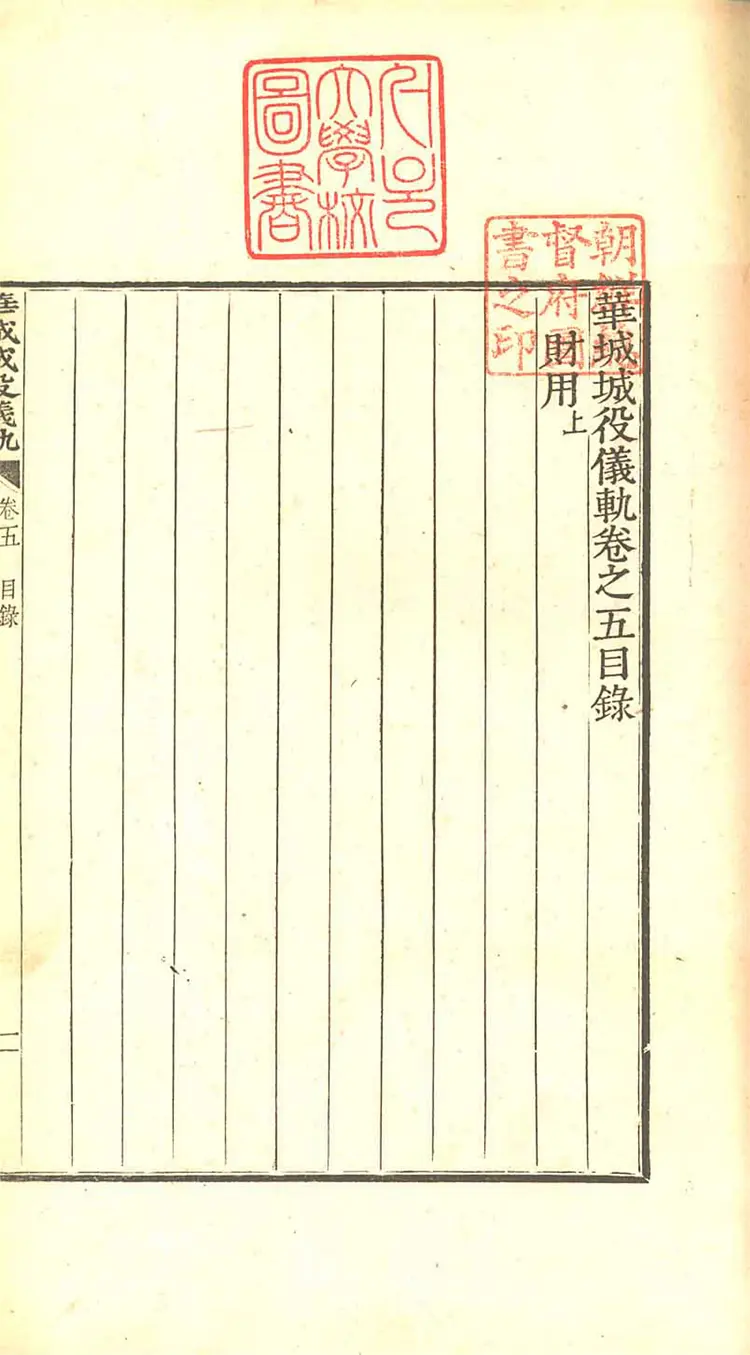 서울大學校圖書
朝鮮總督府圖書之印
華城城役儀軌卷之五目錄
財用上
華城城役儀軌
卷五 目錄